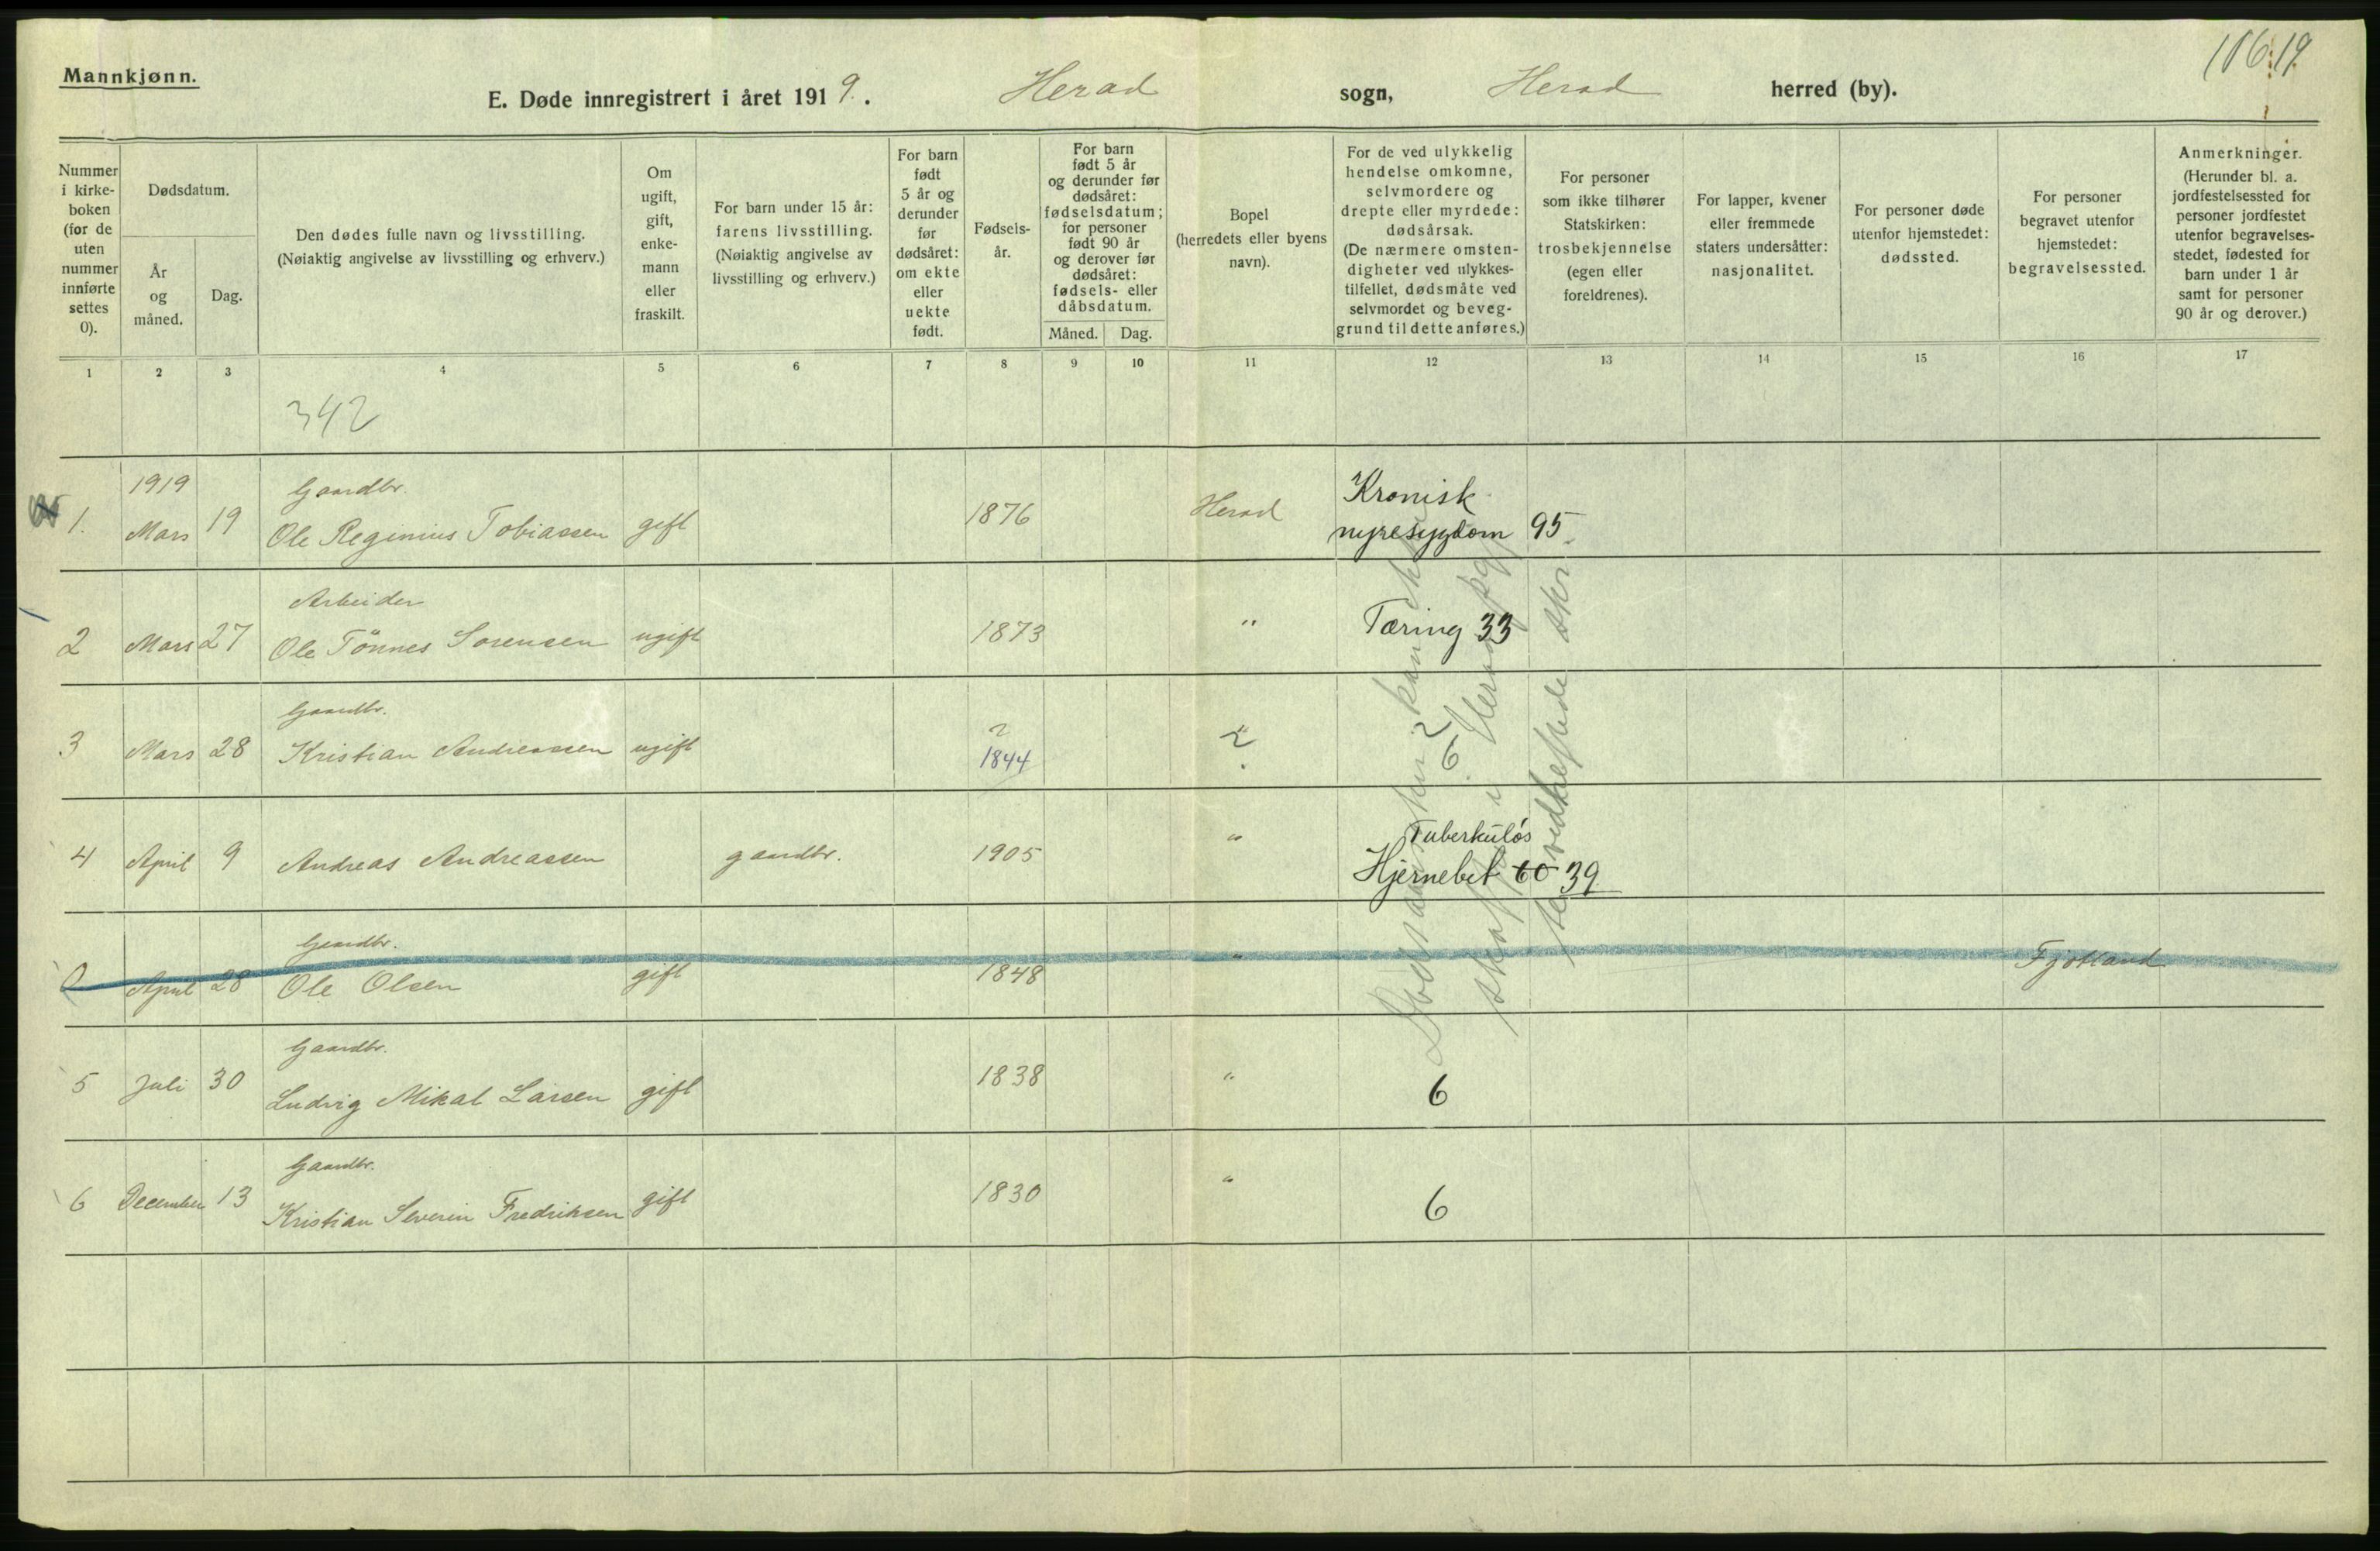 Mannkjønn.
E. Døde innregistrert i året 1919. Herad sogn, Herad herred (by).
Nummer i kirke-boken (for de uten nummer innførte settes 0).
Dødsdatum.
År og måned.
Dag.
Den dødes fulle navn og livsstilling.
(Nøiaktig angivelse av livsstilling og erhverv.)
Om ugift, gift, enke-mann eller fraskilt.
For barn under 15 år: farens livsstilling.
(Nøiaktig angivelse av livsstilling og erhverv.)
For barn født 5 år og derunder før dødsåret: om ekte eller uekte født.
Fødsels-år.
For barn født 5 år og derunder før dødsåret: fødselsdatum; for personer født 90 år og derover før dødsåret: fødsels- eller dåbsdatum.
Måned. Dag.
Bopel (herredets eller byens navn).
For de ved ulykkelig hendelse omkomne, selvmordere og drepte eller myrdede: dødsårsak.
(De nærmere omsten-digheter ved ulykkes-tilfellet, dødsmåte ved selvmordet og beveg-grund til dette anføres.)
For personer som ikke tilhører Statskirken: trosbekjennelse (egen eller foreldrenes).
For lapper, kvener eller fremmede staters undersåtter: nasjonalitet.
For personer døde utenfor hjemstedet: dødssted.
For personer begravet utenfor hjemstedet: begravelsessted.
Anmerkninger.
(Herunder bl. a. jordfestelsessted for personer jordfestet utenfor begravelses-stedet, fødested for barn under 1 år samt for personer 90 år og derover.)
1 2 3 4 5 6 7 8 9 10 11 12 13 14 15 16 17
342
1919 Gaardbr. Kronisk
1. Mars 19 Ole Reginius Tobiassen gift 1876 Herad nyresygdom 95
Arbeider
2 Mars 27 Ole Tönnes Sorensen ugift 1873 " Tæring 33
Gaardbr. ?
3 Mars 28 Kristian Andreassen ugift 1844 6
Tuberkuløs
4 April 9 Andreas Andreassen gaardbr. 1905 " Hjernebet 60 39
Gaardbr.
0 April 28 Ole Olsen gift 1848 " Fjotland
Gaardbr.
5 Juli 30 Ludvig Mikal Larsen gift 1838 " 6
Gaardbr.
6 December 13 Kristian Severin Fredriksen gift 1830 " 6